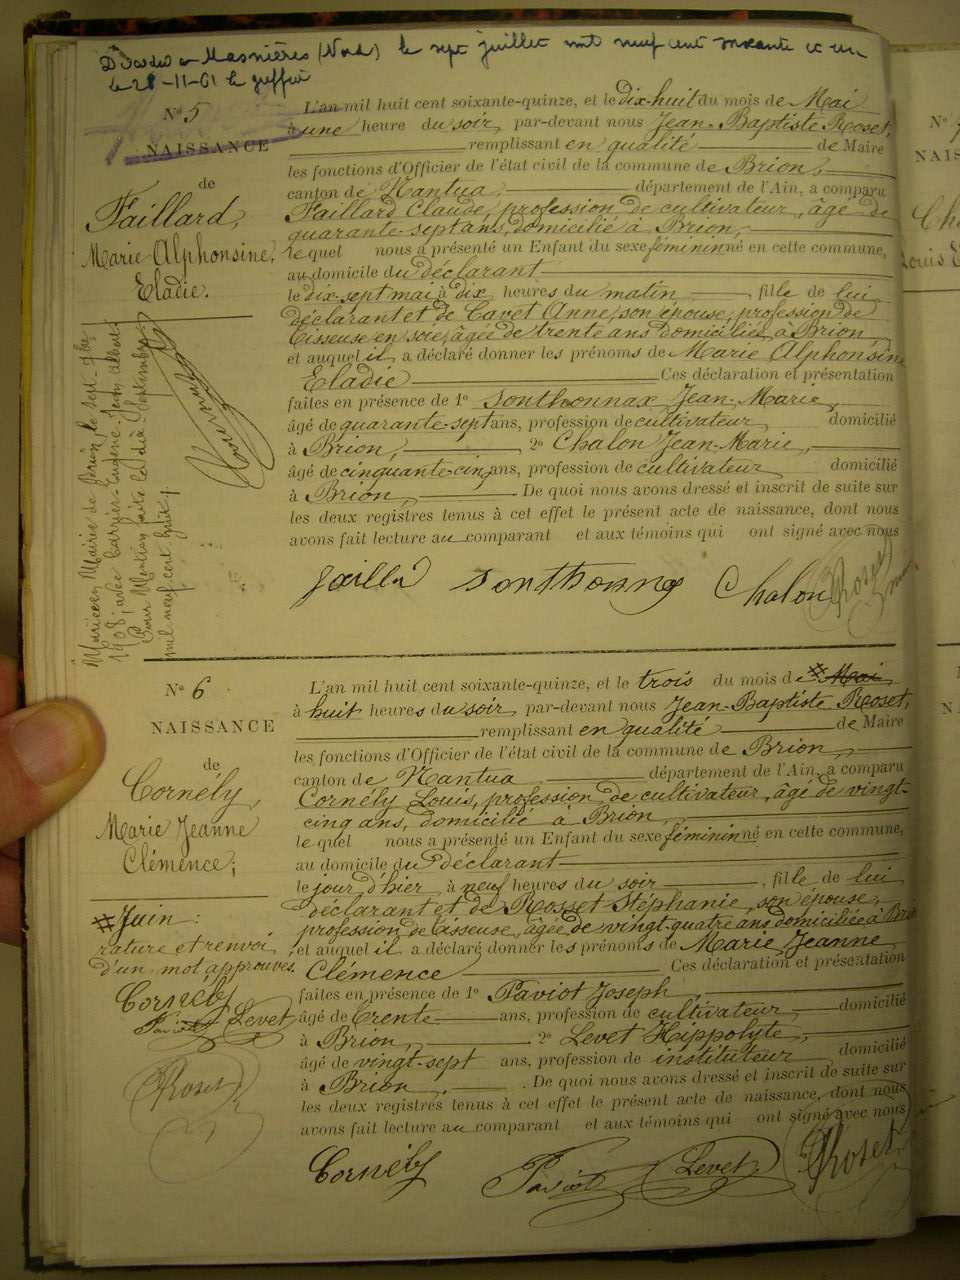 Décédée à Masnières (Nord) le sept juillet mil neuf cent soixante et un
le 28-11-61 le greffier
N° 5
NAISSANCE
de
Faillard,
Marie Alphonsine,
Eladie.
Mariée en Mairie de Brion, le sept - 7bre
1908, avec Carrier-Eugène-Jean Albert.
Pour Mention faite le dix Septembre
mil neuf cent huit.
L'an mil huit cent soixante-quinze, et le dix-huit du mois de Mai
à une heure du soir, par-devant nous Jean-Baptiste Roset,
remplissant en qualité de Maire
les fonctions d'Officier de l'état civil de la commune de Brion,
canton de Nantua, département de l'Ain, a comparu
Faillard Claude, profession de cultivateur, âgé de
quarante-sept ans, domicilié à Brion,
lequel nous a présenté un Enfant du sexe féminin né en cette commune,
au domicile du déclarant
le dix-sept mai à dix heures du matin, fille de lui
déclarant et de Cavet Anne, son épouse, profession de
tisseuse en soie, âgée de trente ans domiciliée à Brion
et auquel il a déclaré donner les prénoms de Marie Alphonsine
Eladie Ces déclaration et présentation
faites en présence de 1° Sonthonnax Jean-Marie,
âgé de quarante-sept ans, profession de cultivateur domicilié
à Brion, 2° Chalon Jean-Marie,
âgé de cinquante-cinq ans, profession de cultivateur domicilié
à Brion, De quoi nous avons dressé et inscrit de suite sur
les deux registres tenus à cet effet le présent acte de naissance, dont nous
avons fait lecture au comparant et aux témoins qui ont signé avec nous
Faillard Sonthonnax Chalon Roset
N° 6
NAISSANCE
de
Cornély,
Marie Jeanne
Clémence;
# Juin:
rature et renvoi
d'un mot approuvés.
Cornély
Paviot Levet
Roset
L'an mil huit cent soixante-quinze, et le trois du mois de # Mai
à huit heures du soir, par-devant nous Jean-Baptiste Roset,
remplissant en qualité de Maire
les fonctions d'Officier de l'état civil de la commune de Brion,
canton de Nantua département de l'Ain, a comparu
Cornély Louis, profession de cultivateur, âgé de vingt-
cinq ans, domicilié à Brion,
lequel nous a présenté un Enfant du sexe féminin né en cette commune,
au domicile du déclarant
le jour d'hier à neuf heures du soir, fille de lui
déclarant et de Rosset Stéphanie, son épouse,
profession de tisseuse, âgée de vingt-quatre ans domiciliée à Brion
et auquel il a déclaré donner les prénoms de Marie Jeanne
Clémence Ces déclaration et présentation
faites en présence de 1° Paviot Joseph,
âgé de trente ans, profession de cultivateur, domicilié
à Brion, 2° Levet Hippolyte,
âgé de vingt-sept ans, profession de instituteur domicilié
à Brion, De quoi nous avons dressé et inscrit de suite sur
les deux registres tenus à cet effet le présent acte de naissance, dont nous
avons fait lecture au comparant et aux témoins qui ont signé avec nous
Cornély Paviot Levet Roset